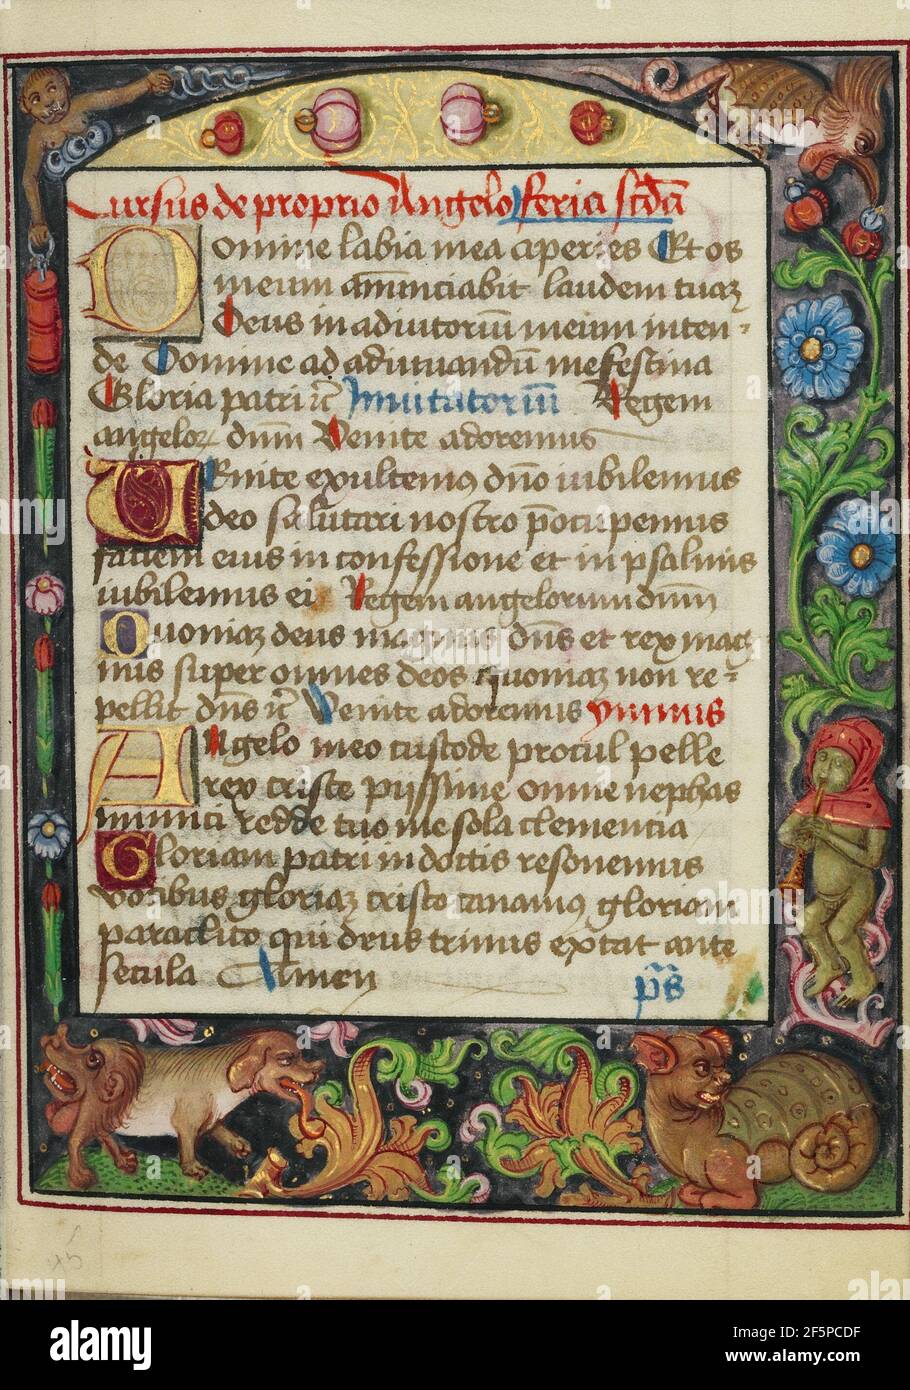 Cursus de proprio Angelo feria scďa
Domine labia mea aperies Et os
meum annũciabit laudem tuaz
Deus in adiutoriũ meum inten-
de Domine ad adiuuandũ me festina
Gloria patri ẽc Inuitatoriũ Regem
angeloꝝ dnm̃ Venite adoremus
VEnite exultemus dño iubilemus
deo salutari nostro p̃ocupemus
faciem eius in confessione et in psalmis
iubilemus ei Regem angelorum dnm̃
Quoniaz deus magnus dñs et rex mag
nus super omnes deos quoniaz non re-
pellit dñs ẽc Venite adoremus ymnus
ANgelo meo custode procul pelle
rex criste pijssime omne nephas
munci redde tuo me sola clemencia
Gloriam patri in doctis resonemus
vocibus gloriaz cristo canamus gloriam
paraclito qui deus trinus extat ante
secula Amen
p̃s
alamy
Image ID: 2F5PCDF
www.alamy.com